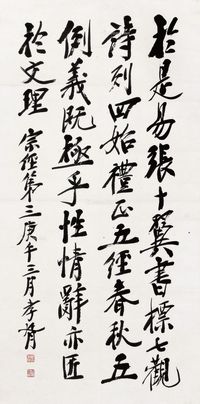 於是易張十翼書標七觀
詩列四始禮正五經春秋五
例義既極乎性情辭亦匠
於文理 宗經第三庚午三月孝胥